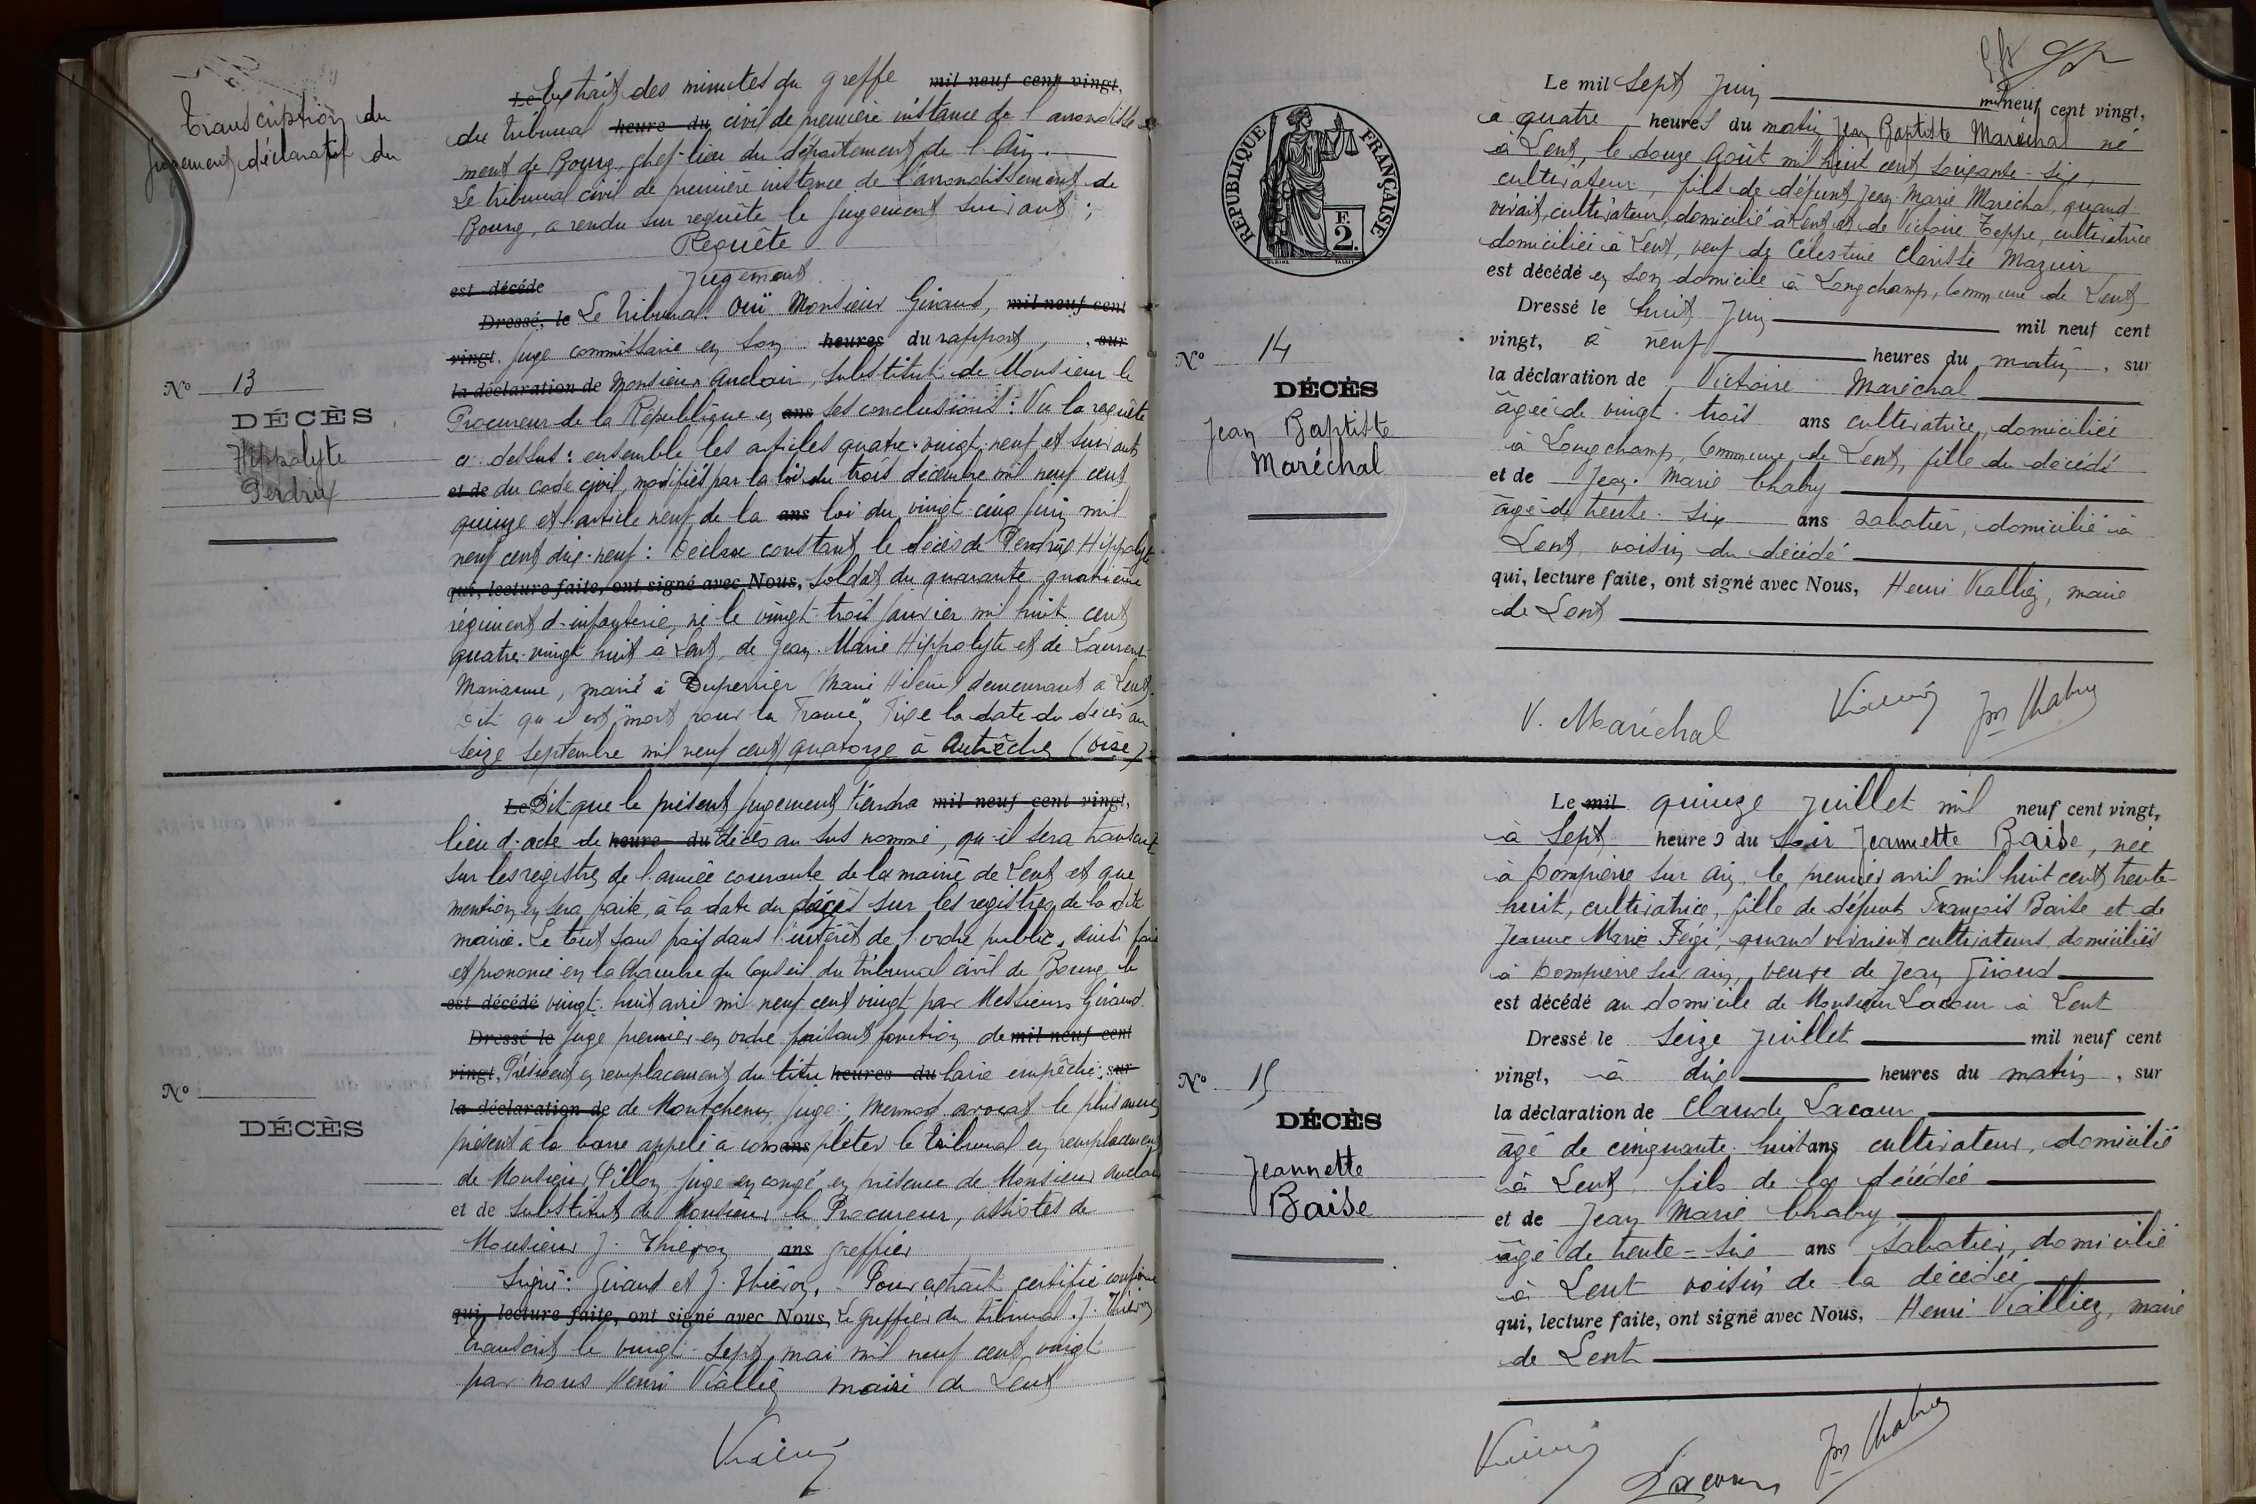 Transcription du
jugement déclaratif du
N° 13
DÉCÈS
Hippolyte
Perdrix
Le Extrait des minutes du greffe mil neuf cent vingt,
du tribunal heure du civil de première instance de l'arrondisse
ment de Bourg, chef-lieu du département de l'Ain.
Le tribunal civil de première instance de l'arrondissement de
Bourg, a rendu sur requête le jugement suivant :
Requête
est décédé Jugement
Dressé, le Le tribunal. Ouï Monsieur Giraud, mil neuf cent
vingt, juge commissaire en son heures du rapport, , sur
la déclaration de Monsieur Auclair, substitut de Monsieur le
Procureur de la République en ans ses conclusions : Vu la requête
ci-dessus : ensemble les articles quatre-vingt-neuf et suivants
et de du code civil, modifiés par la loi du trois décembre mil neuf cent
quinze et l'article neuf de la ans loi du vingt-cinq juin mil
neuf cent dix-neuf : Déclare constant le décès de Perdrix Hippolyte
qui, lecture faite, ont signé avec Nous, soldat du quarante quatrième
régiment d'infanterie, né le vingt-trois janvier mil huit cent
quatre-vingt huit à Lent, de Jean-Marie Hippolyte et de Laurent
Marianne, marié à Duperrier Marie Hélène, demeurant à Lent.
Dit qu'il est "mort pour la France", Fixe la date du décès au
seize septembre mil neuf cent quatorze à Autrèche (Oise)
Le Dit que le présent jugement tiendra mil neuf cent vingt,
lieu d'acte de heure du décès au sus nommé, qu'il sera transcrit
sur les registres de l'année courante de la mairie de Lent et que
mention en sera faite, à la date du décès sur les registres de la dite
mairie. Le tout sans frais dans l'intérêt de l'ordre public. Ainsi fait
et prononcé en la chambre du Conseil du tribunal civil de Bourg, le
est décédé vingt-huit avril mil neuf cent vingt par Messieurs Giraud
Dressé le juge premier en ordre faisant fonction de mil neuf cent
vingt, Président en remplacement du titu heures du laire empêché, sur
la déclaration de de Montchenu, juge ; Mermod avocat le plus ancien
présent à la barre appelé à com ans pléter le tribunal en remplacement
de Monsieur Pillon juge en congé, en présence de Monsieur Auclair
et de substitut de Monsieur le Procureur, assistés de
Monsieur J. Thiéron ans greffier
Signé : Giraud et J. Thiéron. Pour extrait certifié conforme
qui, lecture faite, ont signé avec Nous, Le greffier du tribunal. J. Thiéron
transcrit le vingt-sept mai mil neuf cent vingt
par nous Henri Viallier maire de Lent
N°
DÉCÈS
RÉPUBLIQUE FRANÇAISE
F.
2.
N° 14
DÉCÈS
Jean Baptiste
Maréchal
Le mil sept juin mil neuf cent vingt,
à quatre heures du matin Jean Baptiste Maréchal né
à Lent, le douze Août mil huit cent soixante-six,
cultivateur, fils de défunt Jean-Marie Maréchal, quand
vivait, cultivateur, domicilié à Lent et de Victoire Teppe, cultivatrice
domiciliée à Lent, veuf de Célestine Clarisse Mazuir
est décédé en son domicile à Longchamp, Commune de Lent
Dressé le huit juin mil neuf cent
vingt, à neuf heures du matin, sur
la déclaration de Victoire Maréchal
âgée de vingt-trois ans cultivatrice, domiciliée
à Longchamp, Commune de Lent, fille du décédé
et de Jean-Marie Chabry
âgé de trente-six ans sabotier, domicilié à
Lent, voisin du décédé
qui, lecture faite, ont signé avec Nous, Henri Viallier, maire
de Lent
V. Maréchal
Jm Chabry
N° 15
DÉCÈS
Jeannette
Baise
Le mil quinze juillet mil neuf cent vingt,
à sept heures du soir Jeannette Baise, née
à Dompierre sur Ain, le premier avril mil huit cent trente-
huit, cultivatrice, fille de défunts François Baise et de
Jeanne Marie Fégi, quand vivaient cultivateurs domiciliés
à Dompierre sur ain, veuve de Jean Giroud
est décédé au domicile de Monsieur Lacour à Lent
Dressé le seize juillet mil neuf cent
vingt, à dix heures du matin, sur
la déclaration de Claude Lacour
âgé de cinquante-huit ans cultivateur, domicilié
à Lent, fils de la décédée
et de Jean Marie Chabry
âgé de trente-six ans sabotier, domicilié
à Lent voisin de la décédée
qui, lecture faite, ont signé avec Nous, Henri Viallier, maire
de Lent
Lacour
Jm Chabry